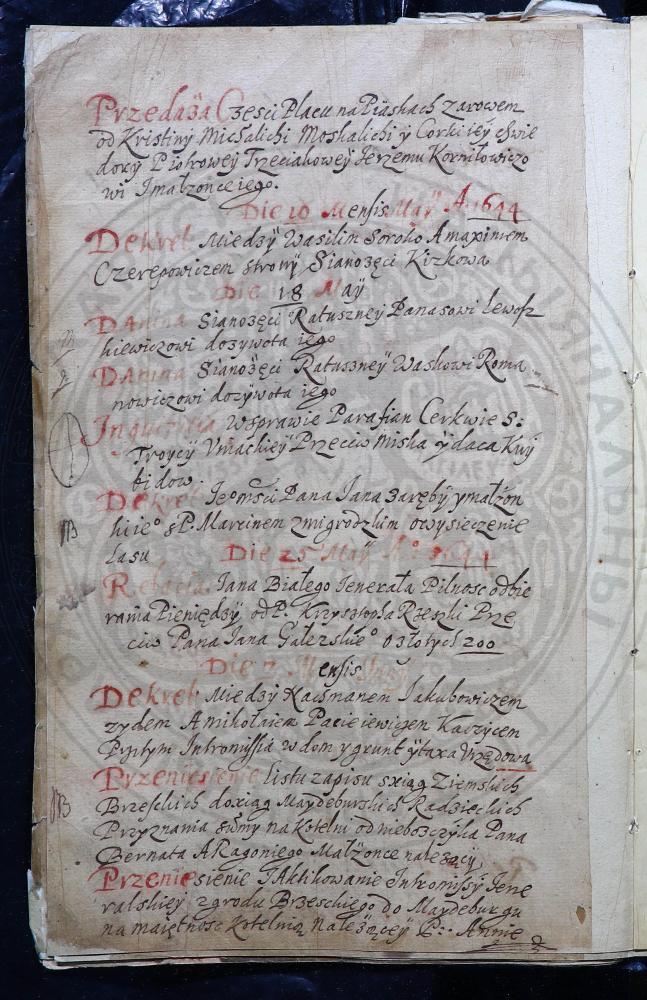 Przedaza Czesci Placu na Piaskach zarowem
od Kristiny Michalichi Moskalichi y Corki iey
Piotrowey Trzeciakowey Ierzemu Korniłowiczo
wi Imałzonce iego.
Die 10 Mensis Maÿ A. 1644
Dekret Miedzÿ Wasilim Soroko A maximem
Czerepowiczem strony Sianozęci Kizkowa
Die 18 Maÿ
Danina Sianozęci Ratuszneÿ Panasowi Lewosz
kiewiczowi dozywota iego
Danina Sianozęci Ratuszneÿ Waskowi Roma
nowiczowi dozywota iego
Inquisitia Wsprawie Parafian Cerkwie S:
Troycÿ Przeciw Misha
bidow.
Dekret Ieomsci Pana Iana Zaręby ymałzon
kieo sP. Marcinem Zmigrodzkim owysieczenie
Lasu Die 25 Maÿ Ao 1644
Relacia Iana Białego Ienerała Pilnosc odbie
rania Pieniędzÿ od P. Krzysztopha Rzeszki Prze
ciw Pana Iana o złotych 200
Die 7 Mensis
Dekret Miedzÿ Kacsmanem Iakubowiczem
zydem A mikołaiem Pacieiewiczem
Intromissia w dom y grunt ÿ taxa Vrzędowa
Przeniesienie Listu zapisu sxiąg Ziemskich
Brzeskich do xiąg Maydeburskich Radzieckich
Przyznania summy na Kotelni od nieboszczyka Pana
Bernata A Ragoniego Małzonce nalezącÿ
Przeniesienie IAktikowanie Intromissÿ Iene
ralskieÿ zgrodu Brzeskiego do Maydeburgu
na maiętnosc Kotelnią Należącey P:: Annie